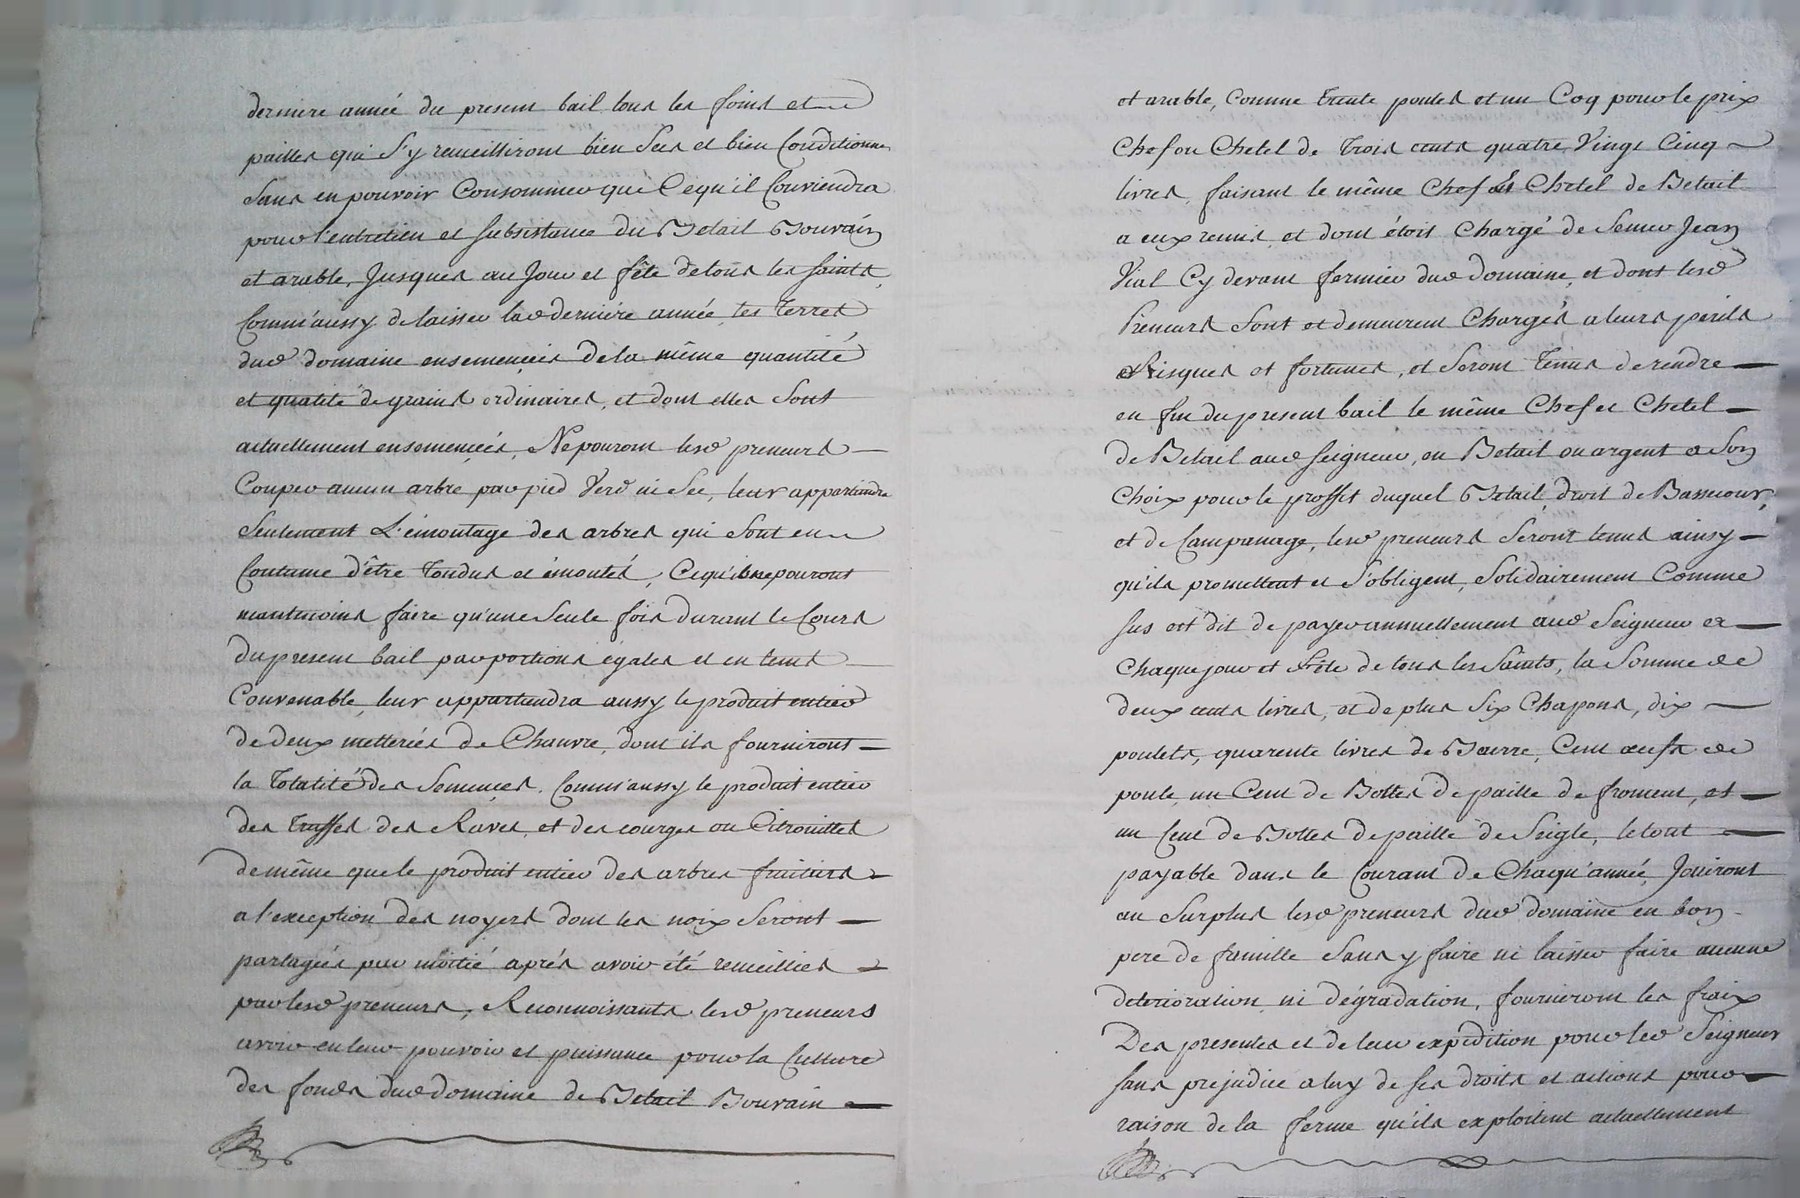 derniere année du present bail tous les foins et
pailles qui s'y recueilliront bien secs et bien Conditionnes
sans en pouvoir Consommer que Cequ'il Conviendra
pour l'entretien et subsistance du Betail Bouvain
et arable, Jusques au Jour et fête detous les saints,
Comm'aussy delaisser lad derniére année, les terres
dud domaine ensemencées dela même quantité
et qualité de grains ordinaires, et dont elles sont
actuellement ensemencées, Ne pouront lesd preneurs
Couper aucun arbre par pied Verd ni sec, leur appartiendra
seulement L'émontage des arbres qui sont en
Coutume d'être tondus et émontés, Cequ'ils ne pouront
neantmoins faire qu'une seule fois durant le Cours
du present bail par portions égales et en tems
Convenable, leur appartiendra aussy le produit entier
de deux metterées de Chanvre, dont ils fourniront
la totalité des semences, Comm'aussy le produit entier
des truffes des Raves, et des courges ou Citrouilles
de même que le produit entier des arbres fruitiers
a l'exception des noyers dont les noix seront
partagées par moitié aprés avoir été recueillies
par lesd preneurs, Reconnoissants lesd preneurs
avoir en leur pouvoir et puissance pour la Culture
des fonds dud domaine de Betail Bouvain
et arable, Comme trente poules et un Coq pour le prix
Chef ou Chetel de trois cents quatre Vingt Cinq
livres, faisant le même Chef et Chetel de Betail
a eux remis, et dont étoit Chargé de Seneu Jean
Vial Cy devant fermier dud domaine, et dont lesd
Preneurs sont et demeurent Chargés a leurs périls
Risques et fortunes, et seront tenus de rendre
en fin du present bail le même Chef et Chetel
de Betail aud seigneur, en Betail ou argent a son
Choix pour le proffit duquel Betail, droit de Bassecour,
et de Campanage, lesd preneurs seront tenus ainsy
qu'ils promettent et s'obligent, solidairement Comme
sus est dit de payer annuellement aud Seigneur a
Chaque jour et fête de tous les saints, la somme de
deux cents livres, et de plus six Chapons, dix
poulets, quarente livres de Beurre, Cent oeufs de
poule, un Cent de Bottes de paille de froment, et
un Cent de Bottes de paille de seigle, le tout
payable dans le Courant de Chaqu'année, Jouiront
au surplus lesd preneurs dud domaine en bon
pere de famille sans y faire ni laisser faire aucune
deterioration ni dégradation, fourniront les fraix
Des presentes et de leur expédition pour led Seigneur
sans prejudice a luy de ses droits et actions pour
raison de la ferme qu'ils exploitent actuellement